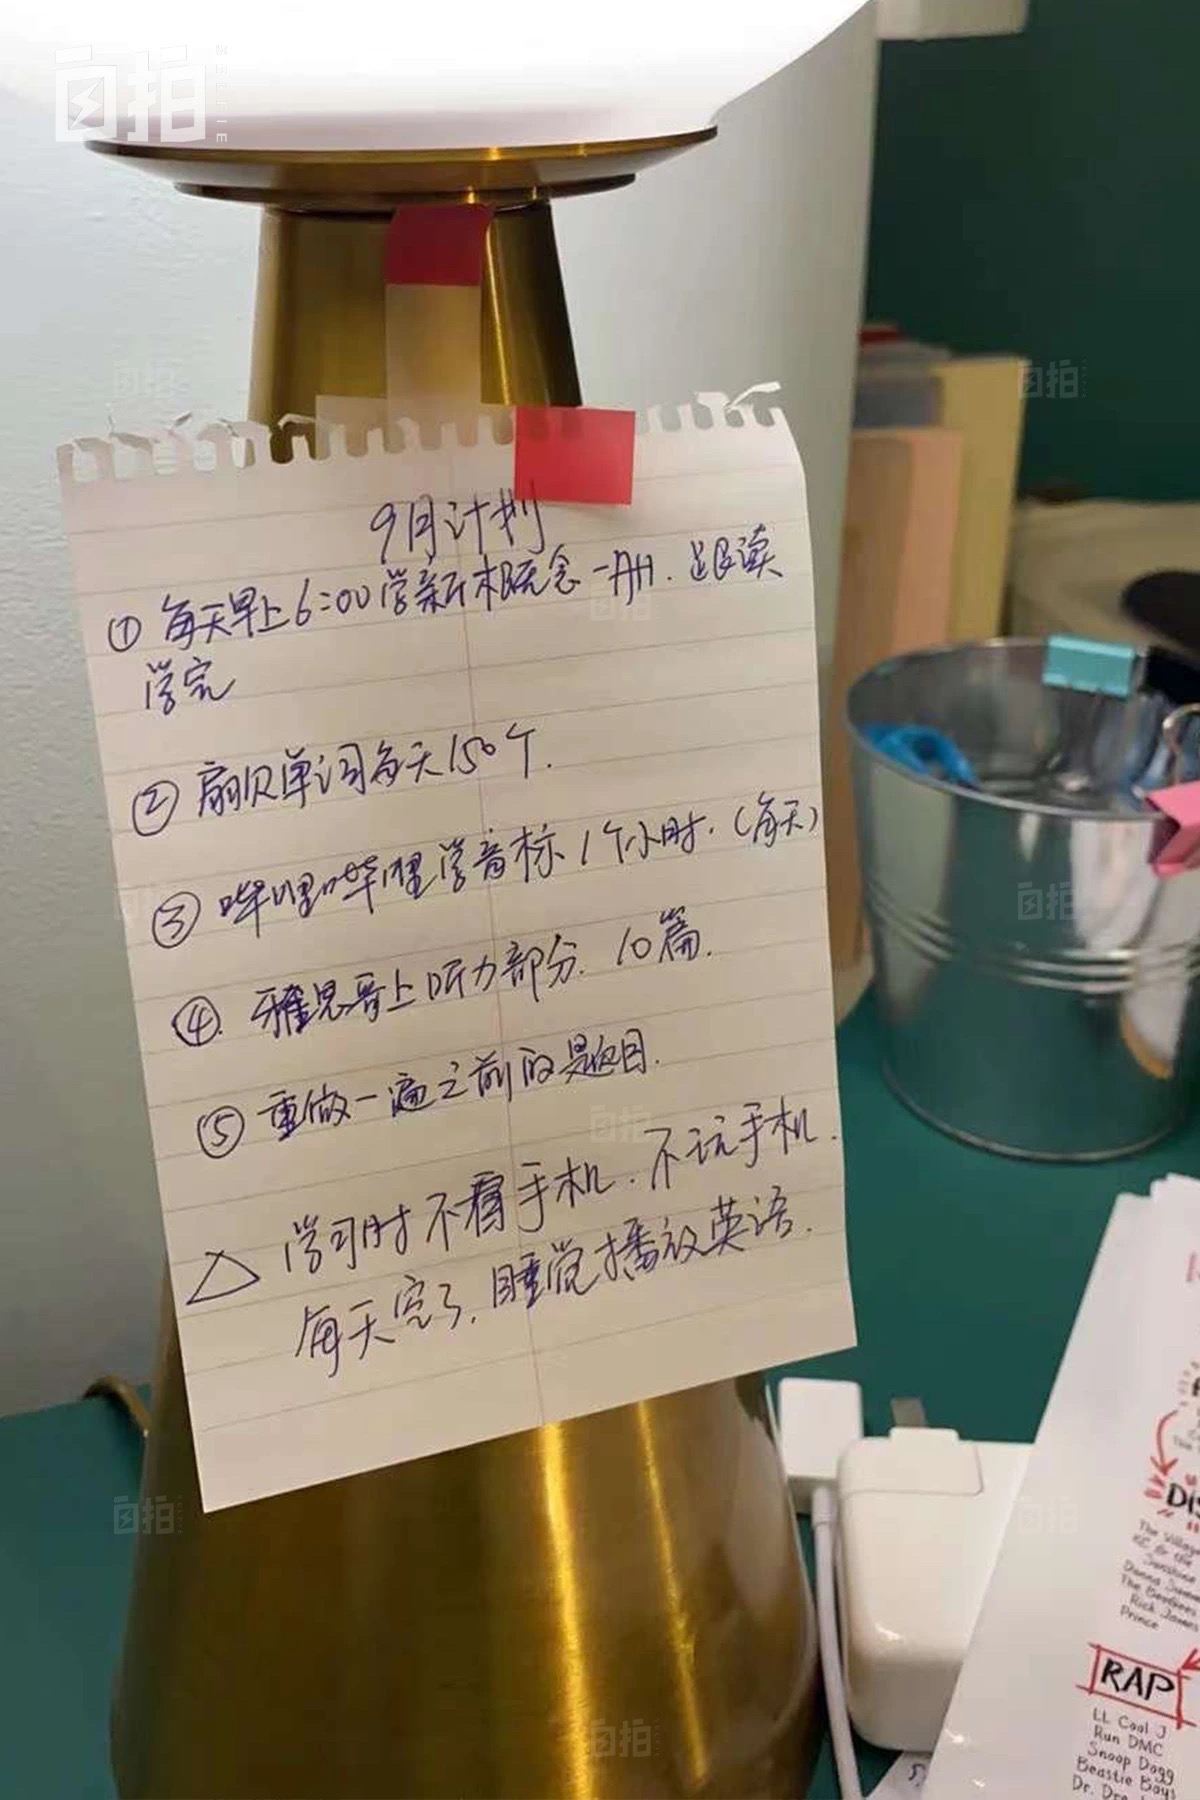 自拍
SELFIE
9月计划
① 每天早上6:00学新概念一册.跟读
学完
② 扇贝单词每天150个.
③ 哔哩哔哩学音标1个小时.(每天)
④. 雅思哥上听力部分. 10篇.
⑤ 重做一遍之前的题目.
△ 学习时不看手机.不玩手机.
每天完了,睡觉播放英语.
The Village
KC & the
Sunshine
Donna Summer
The Beegees
Rick James
Prince
RAP
LL Cool J
Run DMC
Snoop Dogg
Beastie Boys
Dr. Dre